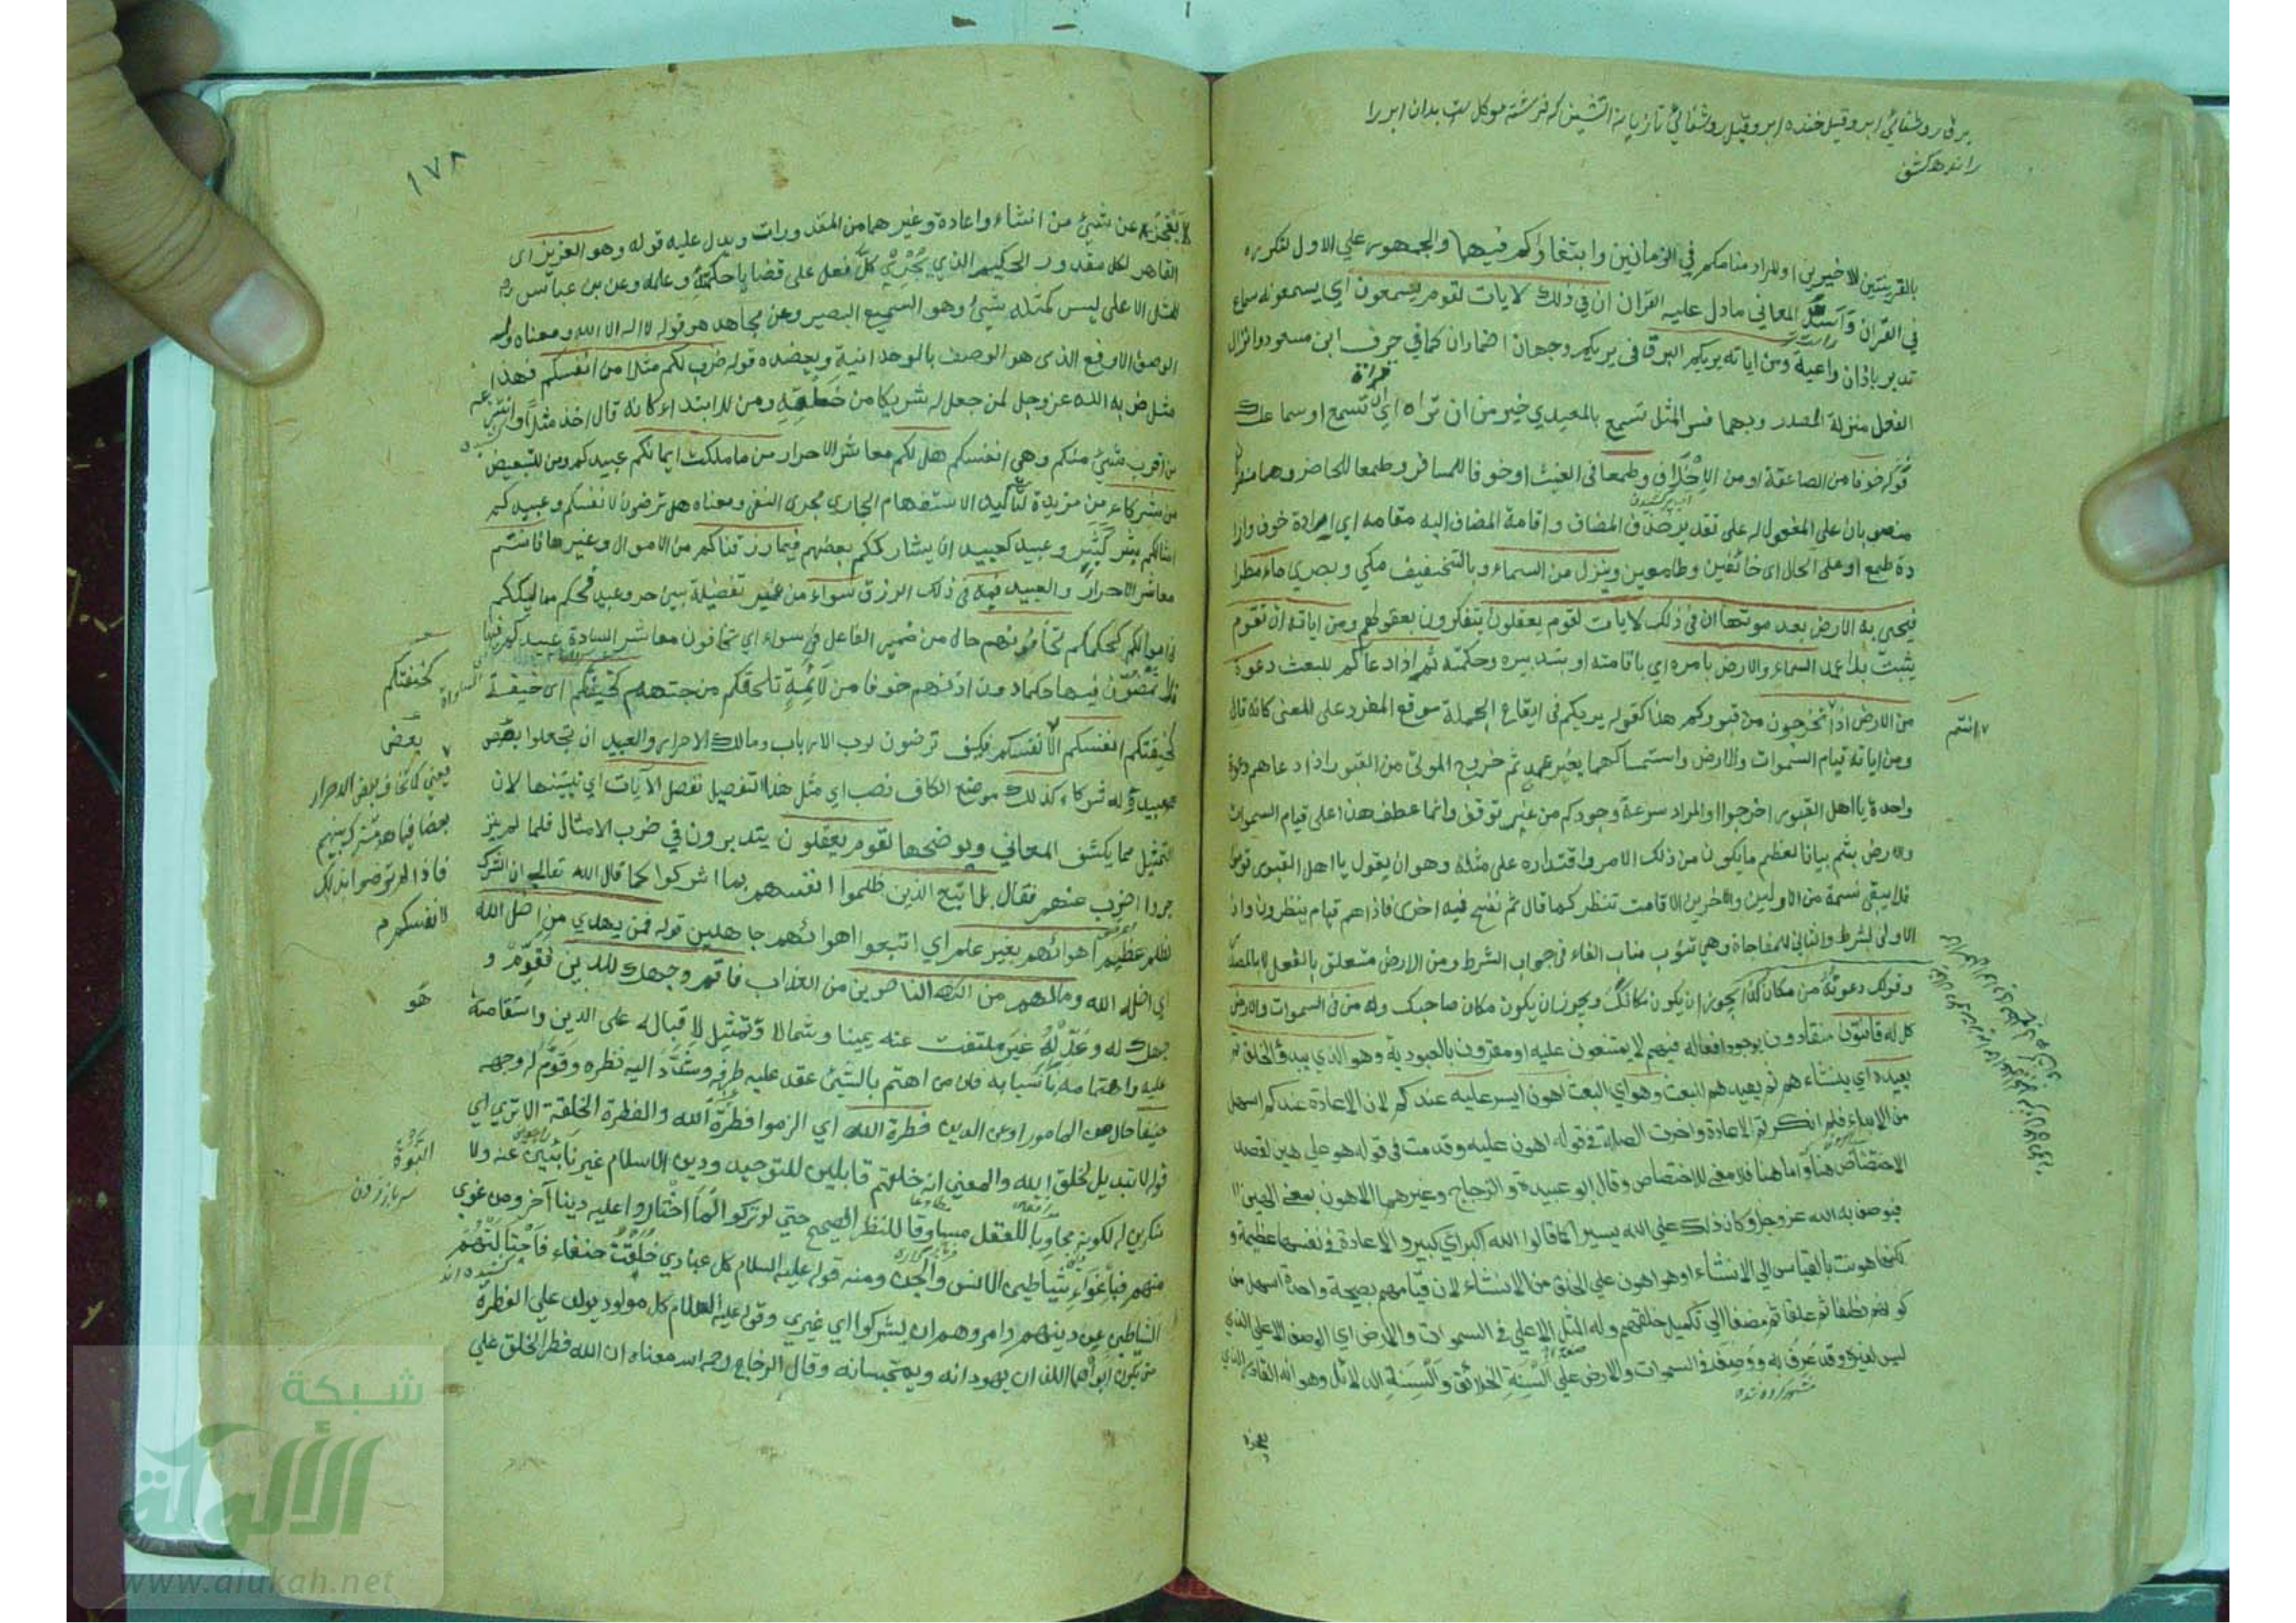 برق روشنائي ابر وقيل خنده ابر وقيل روشنائي تازيانه اتشين كه فرشته موكل بدان ابر را
راند
بالقرينتين الاخيرين او المراد منامكم في الزمانين وابتغاؤكم فيهما والجمهور على الاول لتكرره
في القران واسد المعاني مادل عليه القران ان في ذلك لايات لقوم يسمعون اي يسمعونه سماع
تدبر باذان واعية ومن اياته يريكم البرق في يريكم وجهان اضمار ان كما في حرف ابن مسعود وانزال
الفعل منزلة المصدر وبهما فسر المثل تسمع بالمعيدي خير من ان تراه اي ان تسمع او سماعك
خوفا من الصاعقة او من الاخلاف وطمعا في الغيث او خوفا للمسافر وطمعا للحاضر وهما
منصوبان على المفعول له على تقدير حذف المضاف واقامة المضاف اليه مقامه اي ارادة خوف وارا
دة طمع او على الحال اي خائفين وطامعين وينزل من السماء وبالتخفيف مكي وبصري ماء مطرا
فيحيي به الارض بعد موتها ان في ذلك لايات لقوم يعقلون يتفكرون بعقولهم ومن اياته ان تقوم
يثبت بلا عمد السماء والارض بامره اي باقامته او بتدبيره وحكمته ثم اذا دعاكم للبعث دعوة
من الارض اذا تخرجون من قبوركم هذا كقوله يريكم في ايقاع الجملة موقع المفرد على المعنى كانه قال
انتم
ومن اياته قيام السموات والارض واستمساكهما بغير عمد ثم خروج الموتى من القبور اذا دعاهم دعوة
واحدة يا اهل القبور اخرجوا والمراد سرعة وجود ذلك من غير توقف وانما عطف هذا على قيام السموات
والارض بثم بيانا لعظم ما يكون من ذلك الامر واقتداره على مثله وهو ان يقول يا اهل القبور قوموا
فلا يبقى نسمة من الاولين والاخرين الا قامت تنظر كما قال ثم نفخ فيه اخرى فاذا هم قيام ينظرون واذا
الاولى للشرط والثاني للمفاجاة وهي تنوب مناب الفاء في جواب الشرط ومن الارض متعلق بالفعل لا بالمصدر
وقولك دعوته من مكان كذا يجوز ان يكون مكانك ويجوز ان يكون مكان صاحبك وله من في السموات والارض
كل له قانتون منقادون لوجود افعاله فيهم لا يمتنعون عليه او مقرون بالعبودية وهو الذي يبدؤ الخلق ثم
يعيده اي ينشاء هم ثم يعيدهم للبعث وهو اي البعث اهون ايسر عليه عندكم لان الاعادة عندكم اسهل
من الابداء فلم انكرتم الاعادة واخرت الصلة في قوله اهون عليه وقدمت في قوله هو علي هين لقصد
الاختصاص هناك واما هنا فلا معنى للاختصاص وقال ابو عبيدة والزجاج وغيرهما الاهون بمعنى الهين
فيوصف به الله عز وجل وكان ذلك على الله يسيرا كما قالوا الله اكبر اي كبير والاعادة في نفسها عظيمة و
لكنها هونت بالقياس الى الانشاء او هو اهون على الخلق من الانشاء لان قيامهم بصيحة واحدة اسهل من
كونهم نطفا ثم علقا ثم مضغا الى تكميل خلقهم وله المثل الاعلى في السموات والارض اي الوصف الاعلى الذي
ليس لغيره وقد عرف به ووصف في السموات والارض على السنة الخلائق والسنة الدلائل وهو انه القادر الذي
١٧٨
لا يعجز عن شيئ من انشاء واعادة وغيرهما من المقدورات ويدل عليه قوله وهو العزيز اي
القاهر لكل مقدور الحكيم الذي يجري كل فعل على قضايا حكمته وعلمه وعن بن عباس
المثل الاعلى ليس كمثله شيئ وهو السميع البصير وعن مجاهد هو قوله لا اله الا الله ومعناه وله
الوصف الارفع الذي هو الوصف بالوحدانية ويعضده قوله ضرب لكم مثلا من انفسكم فهذا
مثل ضربه الله عز وجل لمن جعل له شريكا من خلقه ومن للابتداء كانه قال اخذ مثلا وانتزعه
من اقرب شيئ منكم وهي انفسكم هل لكم معاشر الاحرار من ما ملكت ايمانكم عبيدكم ومن للتبعيض
من شركاء من مزيدة لتاكيد الاستفهام الجاري مجرى النفي ومعناه هل ترضون لانفسكم وعبيدكم
امثالكم بشر كبشر وعبيد كعبيد ان يشارككم بعضهم فيما رزقناكم من الاموال وغيرها فانتم
معاشر الاحرار والعبيد فيه في ذلك الرزق سواء من غير تفضيلة بين حر وعبد يحكم مماليككم
في اموالكم كحكمكم تخافونهم حال من ضمير الفاعل في سواء اي تخافون معاشر السادة عبيدكم فيها
فلا تمضون فيها حكما دون اذنهم خوفا من لائمة تلحقكم من جهتهم كخيفتكم اي خيفة
كخيفتكم
كخيفتكم انفسكم لا نفسكم فكيف ترضون لرب الارباب ومالك الاحرار والعبيد ان تجعلوا بعض
بعض
عبيده له شركاء كذلك موضع الكاف نصب اي مثل هذا التفصيل نفصل الايات اي نبينها لان
يعني كما يخاف بعض الاحرار
بعضا فيما هو مشترك بينهم
فاذا لم ترضوا بذلك
لانفسكم
التمثيل مما يكشف المعاني ويوضحها لقوم يعقلون يتدبرون في ضرب الامثال فلما لم ينز
جروا اضرب عنهم فقال بل اتبع الذين ظلموا انفسهم بما اشركوا كما قال الله تعالى ان الشرك
لظلم عظيم اهوائهم بغير علم اي اتبعوا اهوائهم جاهلين قوله فمن يهدي من اضل الله
اي اضله الله وما لهم من الناصرين من العذاب فاقم وجهك للدين فقوم و
هو
جهك له وعدله غير ملتفت عنه يمينا وشمالا وتمثيل لاقباله على الدين واستقامته
عليه واهتمامه باسبابه فان من اهتم بالشيئ عقد عليه طرفه وسدد اليه نظره وقوم له وجهه
حنيفا حال من المامور او من الدين فطرة الله اي الزموا فطرة الله والفطرة الخلقة الا ترى الى
قوله لا تبديل لخلق الله والمعنى انه خلقهم قابلين للتوحيد ودين الاسلام غير نائين عنه ولا
منكرين له لكونه مجاوبا للعقل مساوقا للنظر الصحيح حتى لو تركوا لما اختاروا عليه دينا آخر ومن غوي
منهم فباغواء شياطين الانس والجن ومنه قوله عليه السلام كل عبادي خلقت حنفاء فاجتالتهم
الشياطين عن دينهم وامروهم ان يشركوا اي غيري وقوله عليه السلام كل مولود يولد على الفطرة
حتى يكون ابواه هما اللذان يهودانه ويمجسانه وقال الزجاج رحمه الله معناه ان الله فطر الخلق على
شبكة
الألوكة
www.alukah.net